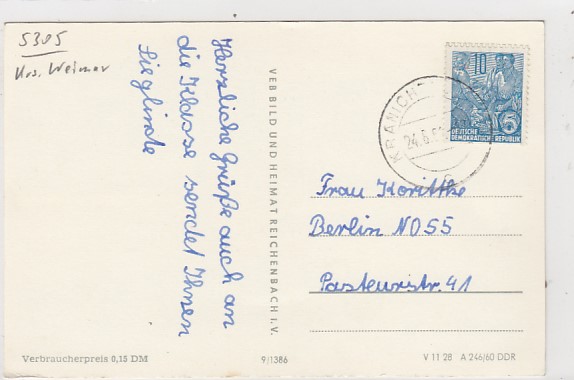 5305
Krs. Weimar
Herzliche Grüße auch an
die Klasse sendet Ihnen
Sieglinde
VEB BILD UND HEIMAT REICHENBACH I.V.
10
DEUTSCHE
DEMOKRATISCHE REPUBLIK
KRANICH
24.6.6
Frau Korittke
Berlin NO55
Pasteurstr. 41
Verbraucherpreis 0,15 DM
9/1386
V 11 28 A 246/60 DDR